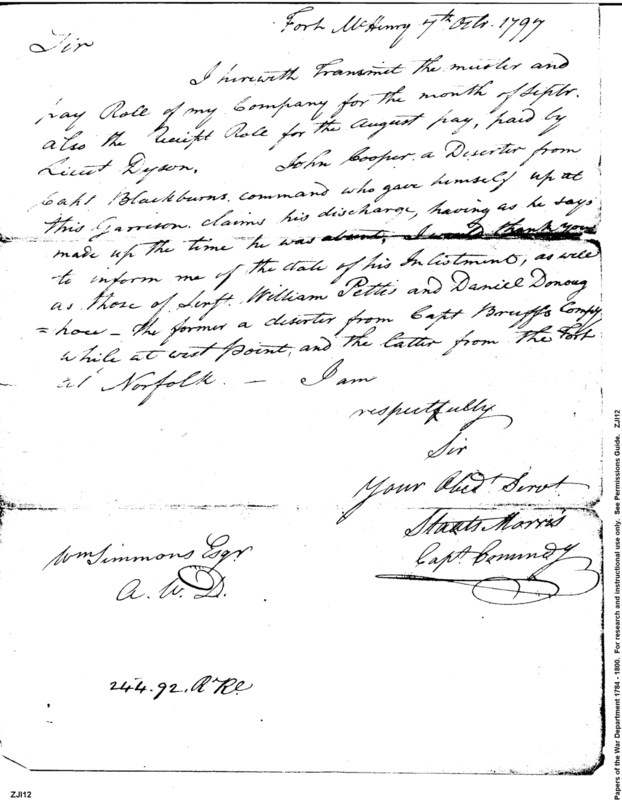 Fort McHenry 7th Octr. 1797
Sir
I herewith transmit the muster and
pay Roll of my Company for the month of Septr.
also the receipt Role for the August pay, paid by
Lieut Dyson. John Cooper a Deserter from
Capt Blackburns command who gave himself up at
this Garrison claims his discharge, having as he says
made up the time he was absent, I would thank you
to inform me of the date of his Inlistment, as well
as those of William Pettis and Daniel Donoug
=hoe - the former a deserter from Capt Bruffs Compy
while at west point, and the latter from the Fort
at Norfolk. — I am
respectfully
Sir
Your Obedt Servt
Staats Morris
Capt Commdg
Wm Simmons Esqr
A. W. D.
244.92.
Papers of the War Department 1784 - 1800. For research and instructional use only. See Permissions Guide. ZJI12
ZJI12